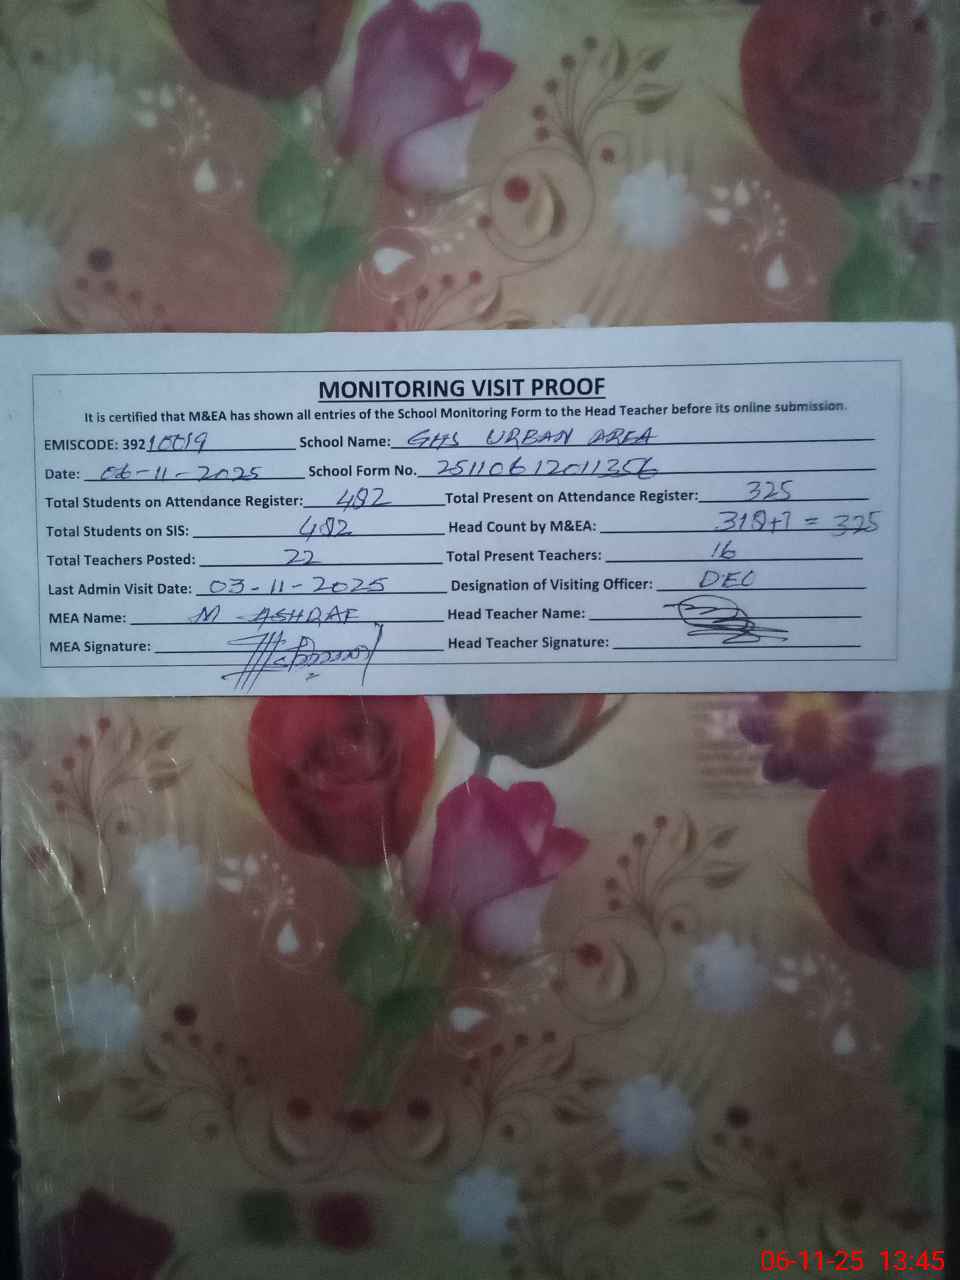 MONITORING VISIT PROOF
It is certified that M&EA has shown all entries of the School Monitoring Form to the Head Teacher before its online submission.
EMISCODE: 39210019 School Name: GHS URBAN AREA
Date: 06-11-2025 School Form No. 25110612011356
Total Students on Attendance Register: 482 Total Present on Attendance Register: 325
Total Students on SIS: 482 Head Count by M&EA: 318+7 = 325
Total Teachers Posted: 22 Total Present Teachers: 16
Last Admin Visit Date: 03-11-2025 Designation of Visiting Officer: DEO
MEA Name: M ASHRAF Head Teacher Name:
MEA Signature: Head Teacher Signature:
06-11-25 13:45